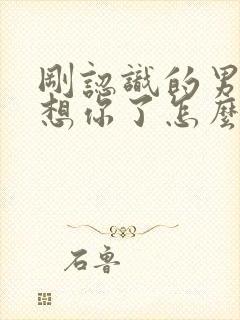 剛認識的男
想你了怎麼
石魯